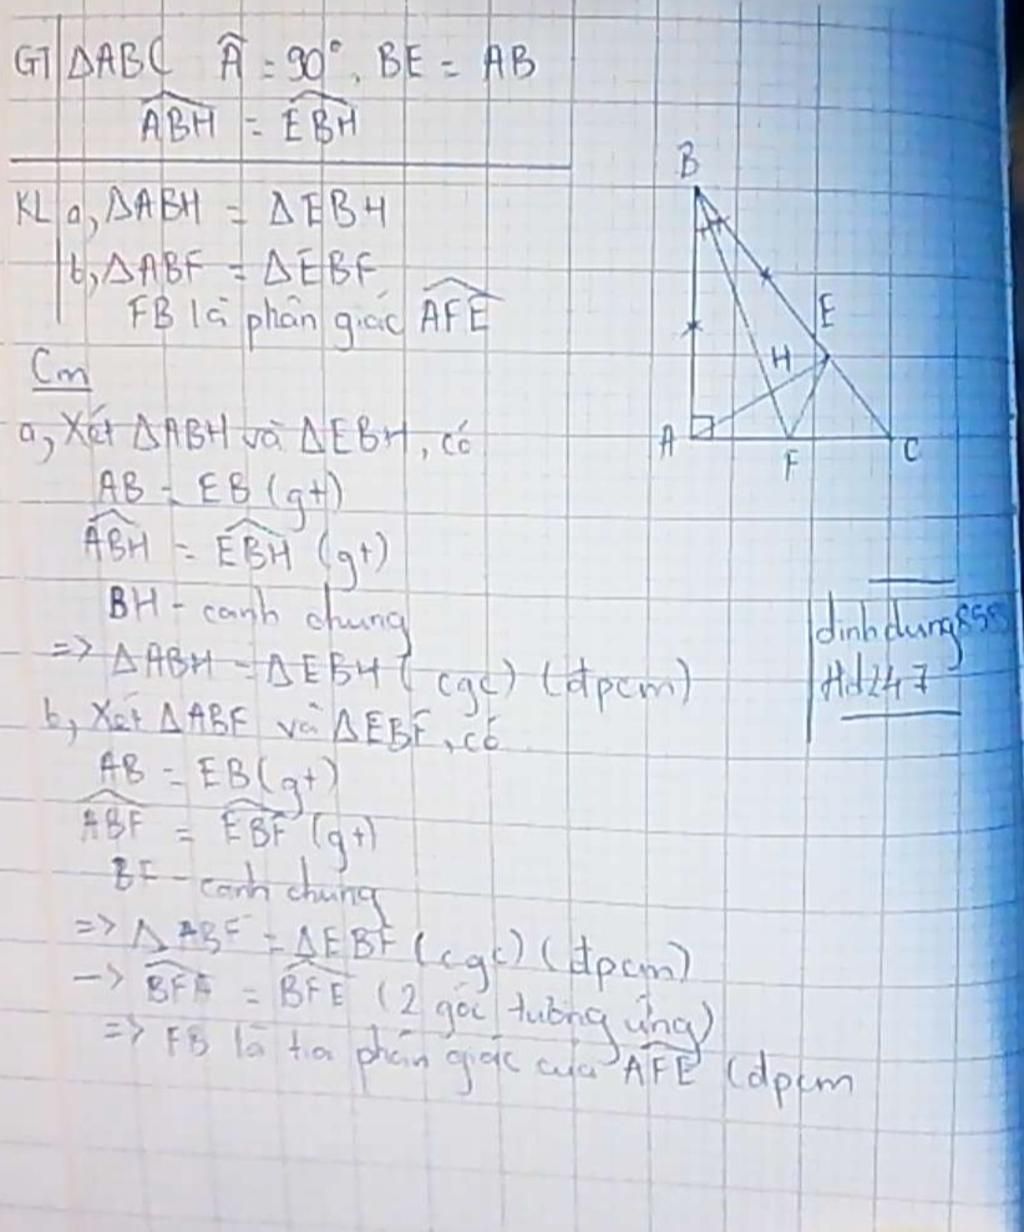 GT ΔABC Â = 90°, BE = AB
ABH = EBH
KL a, ΔABH = ΔEBH
b, ΔABF = ΔEBF
FB là phân giác AFE
Cm
a, Xét ΔABH và ΔEBH, có
AB = EB (gt)
ABH = EBH (gt)
BH - cạnh chung
=> ΔABH = ΔEBH (cgc) (đpcm)
b, Xét ΔABF và ΔEBF, có
AB = EB (gt)
ABF = EBF (gt)
BF - cạnh chung
=> ΔABF = ΔEBF (cgc) (đpcm)
-> BFA = BFE (2 góc tương ứng)
=> FB là tia phân giác của AFE (đpcm
B
E
H
A
F
C
dinhdung858
Hd247